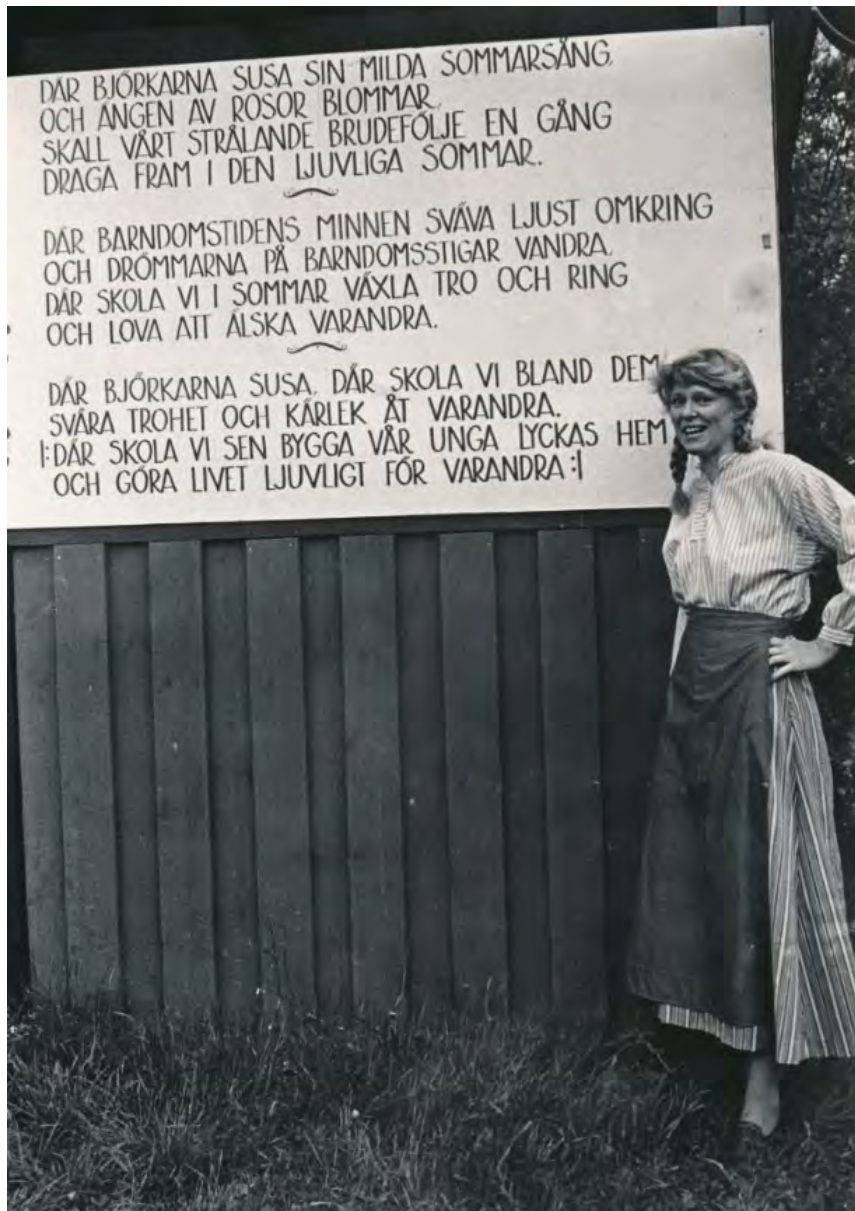 DÄR BJÖRKARNA SUSA SIN MILDA SOMMARSÅNG,
OCH ÄNGEN AV ROSOR BLOMMAR,
SKALL VÅRT STRÅLANDE BRUDEFÖLJE EN GÅNG
DRAGA FRAM I DEN LJUVLIGA SOMMAR.
DÄR BARNDOMSTIDENS MINNEN SVÄVA LJUST OMKRING
OCH DRÖMMARNA PÅ BARNDOMSSTIGAR VANDRA,
DÄR SKOLA VI I SOMMAR VÄXLA TRO OCH RING
OCH LOVA ATT ÄLSKA VARANDRA.
DÄR BJÖRKARNA SUSA, DÄR SKOLA VI BLAND DEM
SVÄRA TROHET OCH KÄRLEK ÅT VARANDRA.
|: DÄR SKOLA VI SEN BYGGA VÅR UNGA LYCKAS HEM
OCH GÖRA LIVET LJUVLIGT FÖR VARANDRA :|